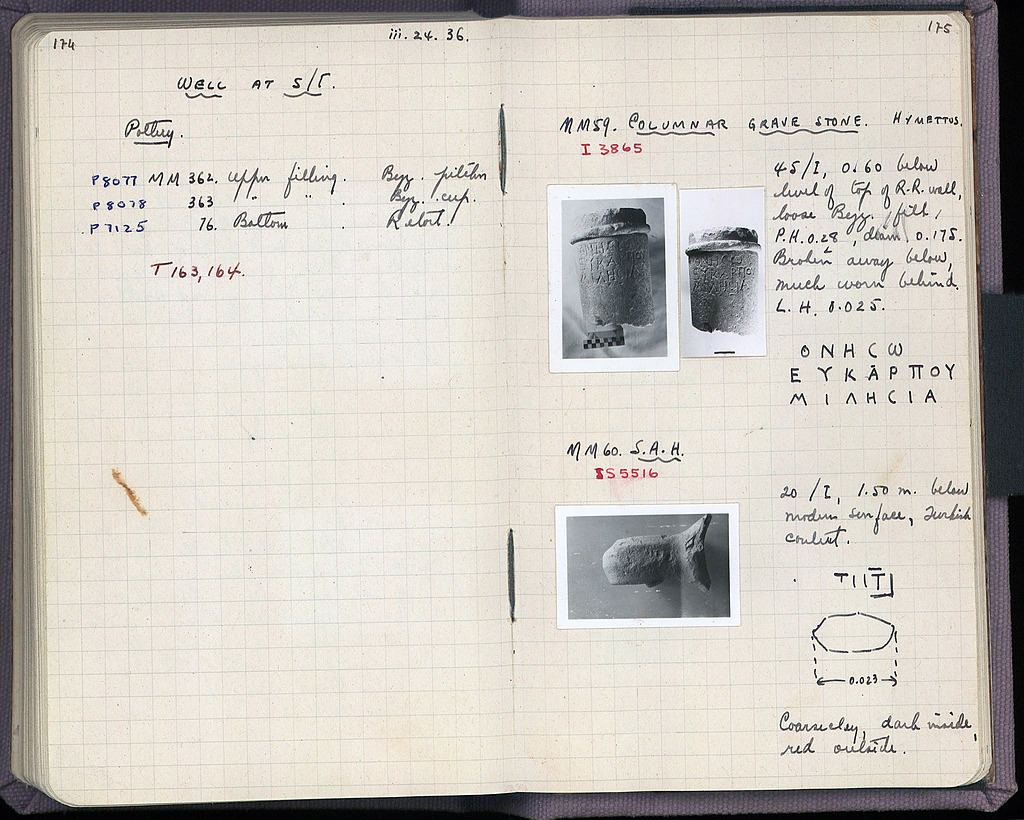 174
iii. 24. 36.
WELL AT S/Γ.
Pottery.
P8077 MM 362. Upper filling. Byz. pitcher
P8078 363 " " . Byz. cup.
P7125 76. Bottom . Retort.
T 163, 164.
175
MM59. COLUMNAR GRAVE STONE. HYMETTUS.
I 3865
45/I, 0.60 below
level of top of R.R. wall,
loose Byz. fill,
P.H. 0.28, diam. 0.175.
Broken away below,
much worn behind.
L.H. 0.025.
ΟΝΗCω
ΕΥΚΑΡΠΟΥ
ΜΙΛΗCΙΑ
MM60. S.A.H.
SS5516
20/I, 1.50 m. below
modern surface, Turkish
context.
0.023
Coarse clay, dark inside,
red outside.